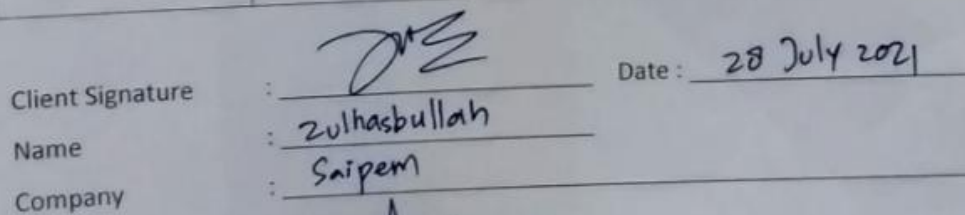 Client Signature : Date : 28 July 2021
Name : Zulhasbullah
Company : Saipem